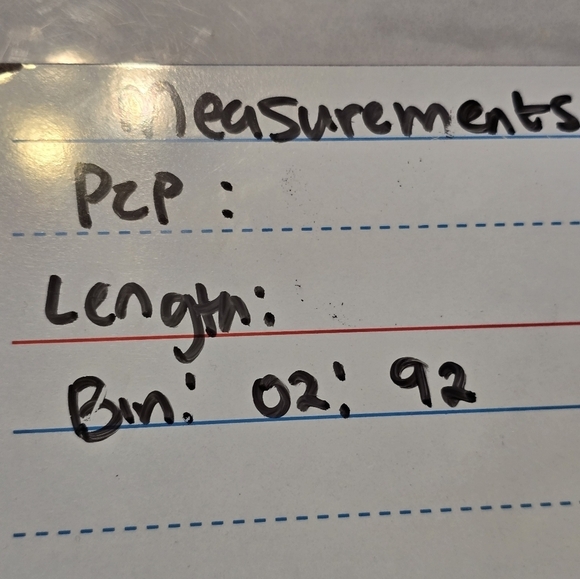 Measurements
P2P :
Length:
Bin: 02: 92